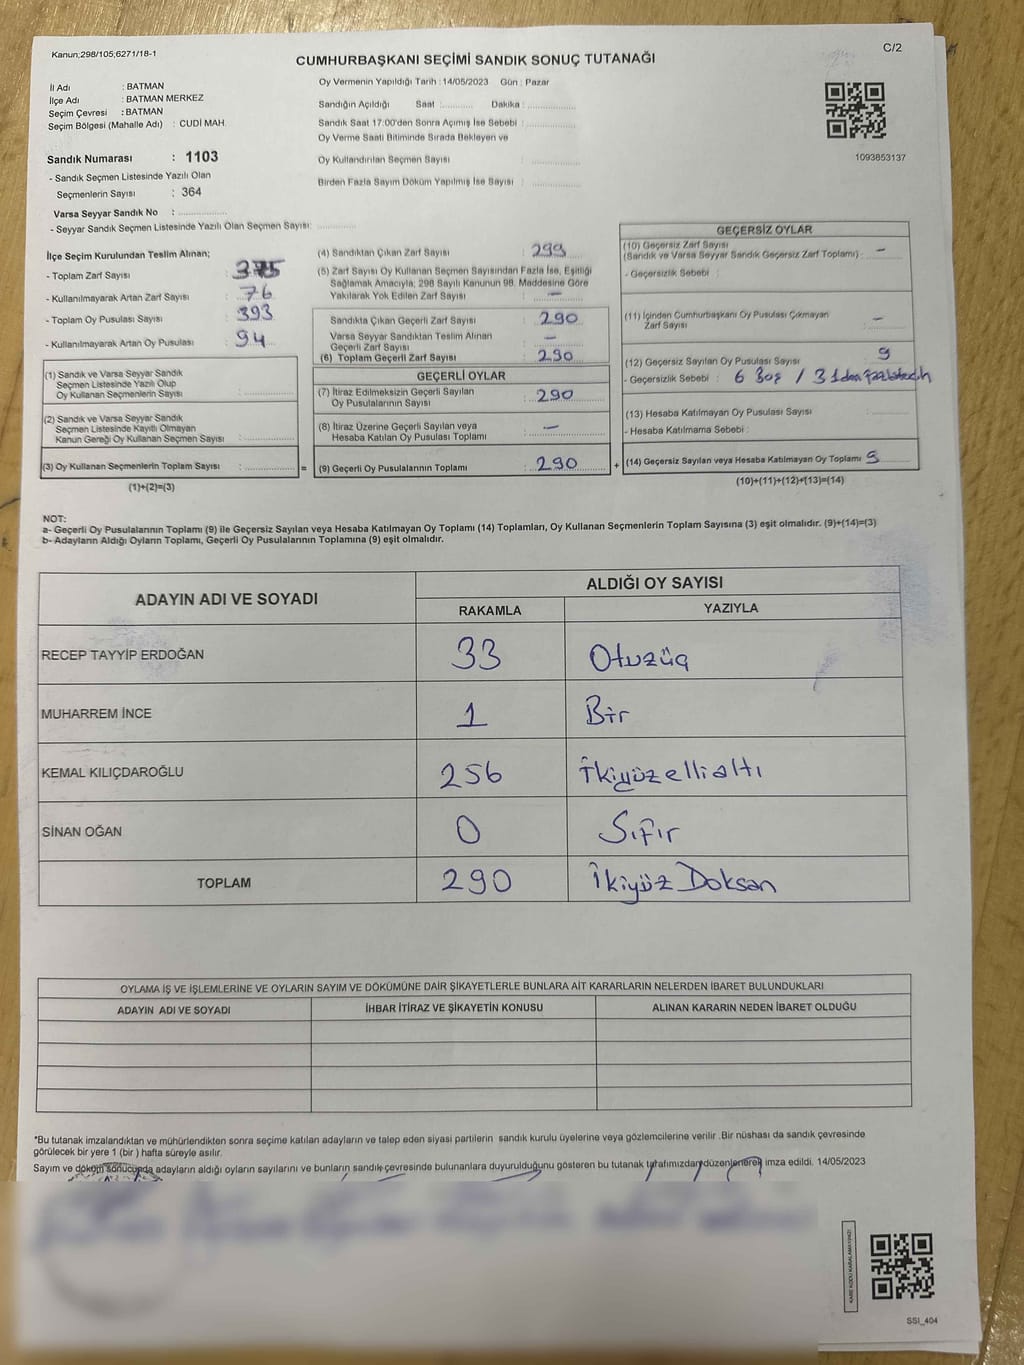 Kanun;298/105;6271/18-1
C/2
CUMHURBAŞKANI SEÇİMİ SANDIK SONUÇ TUTANAĞI
İl Adı : BATMAN
İlçe Adı : BATMAN MERKEZ
Seçim Çevresi : BATMAN
Seçim Bölgesi (Mahalle Adı) : CUDİ MAH.
Sandık Numarası : 1103
- Sandık Seçmen Listesinde Yazılı Olan
Seçmenlerin Sayısı : 364
Varsa Seyyar Sandık No :
- Seyyar Sandık Seçmen Listesinde Yazılı Olan Seçmen Sayısı:
Oy Vermenin Yapıldığı Tarih : 14/05/2023 Gün : Pazar
Sandığın Açıldığı Saat : Dakika :
Sandık Saat 17:00'den Sonra Açımış İse Sebebi :
Oy Verme Saati Bitiminde Sırada Bekleyen ve
Oy Kullandırılan Seçmen Sayısı :
Birden Fazla Sayım Döküm Yapılmış İse Sayısı :
1093853137
İlçe Seçim Kurulundan Teslim Alınan;
- Toplam Zarf Sayısı : 375
- Kullanılmayarak Artan Zarf Sayısı : 76
- Toplam Oy Pusulası Sayısı : 393
- Kullanılmayarak Artan Oy Pusulası : 94
(1) Sandık ve Varsa Seyyar Sandık
Seçmen Listesinde Yazılı Olup
Oy Kullanan Seçmenlerin Sayısı :
(2) Sandık ve Varsa Seyyar Sandık
Seçmen Listesinde Kayıtlı Olmayan
Kanun Gereği Oy Kullanan Seçmen Sayısı :
(3) Oy Kullanan Seçmenlerin Toplam Sayısı : =
(1)+(2)=(3)
(4) Sandıktan Çıkan Zarf Sayısı : 299
(5) Zarf Sayısı Oy Kullanan Seçmen Sayısından Fazla İse, Eşitliği
Sağlamak Amacıyla; 298 Sayılı Kanunun 98. Maddesine Göre
Yakılarak Yok Edilen Zarf Sayısı : —
Sandıkta Çıkan Geçerli Zarf Sayısı : 290
Varsa Seyyar Sandıktan Teslim Alınan
Geçerli Zarf Sayısı : —
(6) Toplam Geçerli Zarf Sayısı : 290
GEÇERLİ OYLAR
(7) İtiraz Edilmeksizin Geçerli Sayılan
Oy Pusulalarının Sayısı : 290
(8) İtiraz Üzerine Geçerli Sayılan veya
Hesaba Katılan Oy Pusulası Toplamı : —
(9) Geçerli Oy Pusulalarının Toplamı : 290 +
GEÇERSİZ OYLAR
(10) Geçersiz Zarf Sayısı
(Sandık ve Varsa Seyyar Sandık Geçersiz Zarf Toplamı) : —
- Geçersizlik Sebebi :
(11) İçinden Cumhurbaşkanı Oy Pusulası Çıkmayan
Zarf Sayısı : —
(12) Geçersiz Sayılan Oy Pusulası Sayısı : 9
- Geçersizlik Sebebi : 6 Boş / 3 1den
(13) Hesaba Katılmayan Oy Pusulası Sayısı :
- Hesaba Katılmama Sebebi :
(14) Geçersiz Sayılan veya Hesaba Katılmayan Oy Toplamı : 9
(10)+(11)+(12)+(13)=(14)
NOT:
a- Geçerli Oy Pusulalarının Toplamı (9) ile Geçersiz Sayılan veya Hesaba Katılmayan Oy Toplamı (14) Toplamları, Oy Kullanan Seçmenlerin Toplam Sayısına (3) eşit olmalıdır. (9)+(14)=(3)
b- Adayların Aldığı Oyların Toplamı, Geçerli Oy Pusulalarının Toplamına (9) eşit olmalıdır.
ADAYIN ADI VE SOYADI ALDIĞI OY SAYISI
RAKAMLA YAZIYLA
RECEP TAYYİP ERDOĞAN 33 Otuzüç
MUHARREM İNCE 1 Bir
KEMAL KILIÇDAROĞLU 256 İkiyüzellialtı
SİNAN OĞAN 0 Sıfır
TOPLAM 290 İkiyüz Doksan
OYLAMA İŞ VE İŞLEMLERİNE VE OYLARIN SAYIM VE DÖKÜMÜNE DAİR ŞİKAYETLERLE BUNLARA AİT KARARLARIN NELERDEN İBARET BULUNDUKLARI
ADAYIN ADI VE SOYADI İHBAR İTİRAZ VE ŞİKAYETİN KONUSU ALINAN KARARIN NEDEN İBARET OLDUĞU
*Bu tutanak imzalandıktan ve mühürlendikten sonra seçime katılan adayların ve talep eden siyasi partilerin sandık kurulu üyelerine veya gözlemcilerine verilir .Bir nüshası da sandık çevresinde
görülecek bir yere 1 (bir ) hafta süreyle asılır.
Sayım ve döküm sonucunda adayların aldığı oyların sayılarını ve bunların sandık çevresinde bulunanlara duyurulduğunu gösteren bu tutanak tarafımızdan düzenlenerek imza edildi. 14/05/2023
KARE KODU KARALAMAYINIZ!
SSI_404